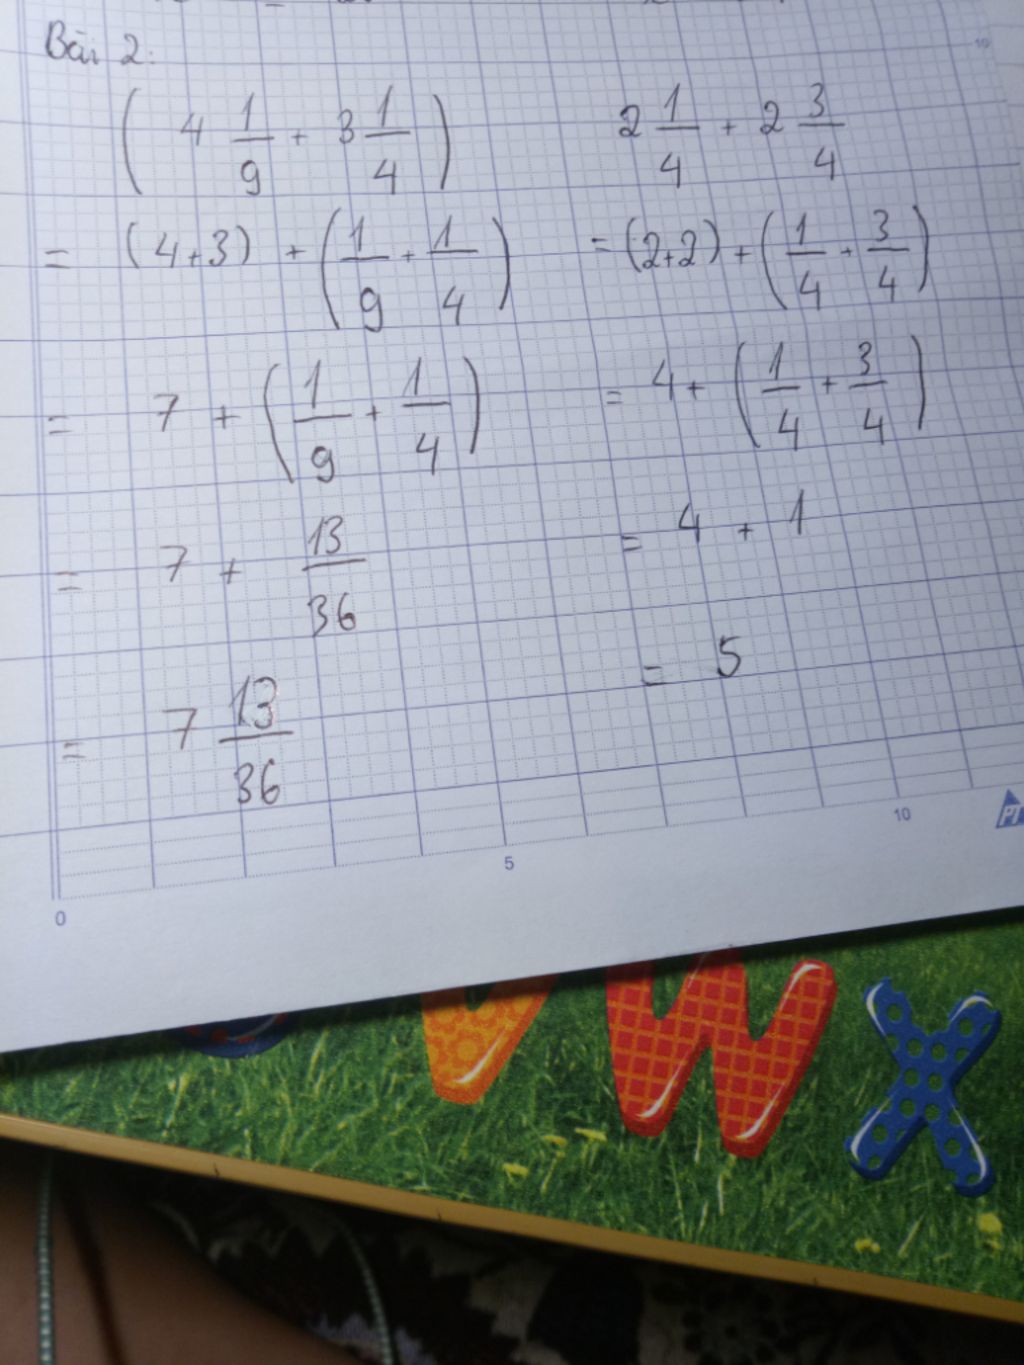 Bài 2:
( 4 1/9 + 3 1/4 )
= (4+3) + ( 1/9 + 1/4 )
= 7 + ( 1/9 + 1/4 )
= 7 + 13/36
= 7 13/36
2 1/4 + 2 3/4
= (2+2) + ( 1/4 + 3/4 )
= 4 + ( 1/4 + 3/4 )
= 4 + 1
= 5
10
0
5
10
PT
W
X